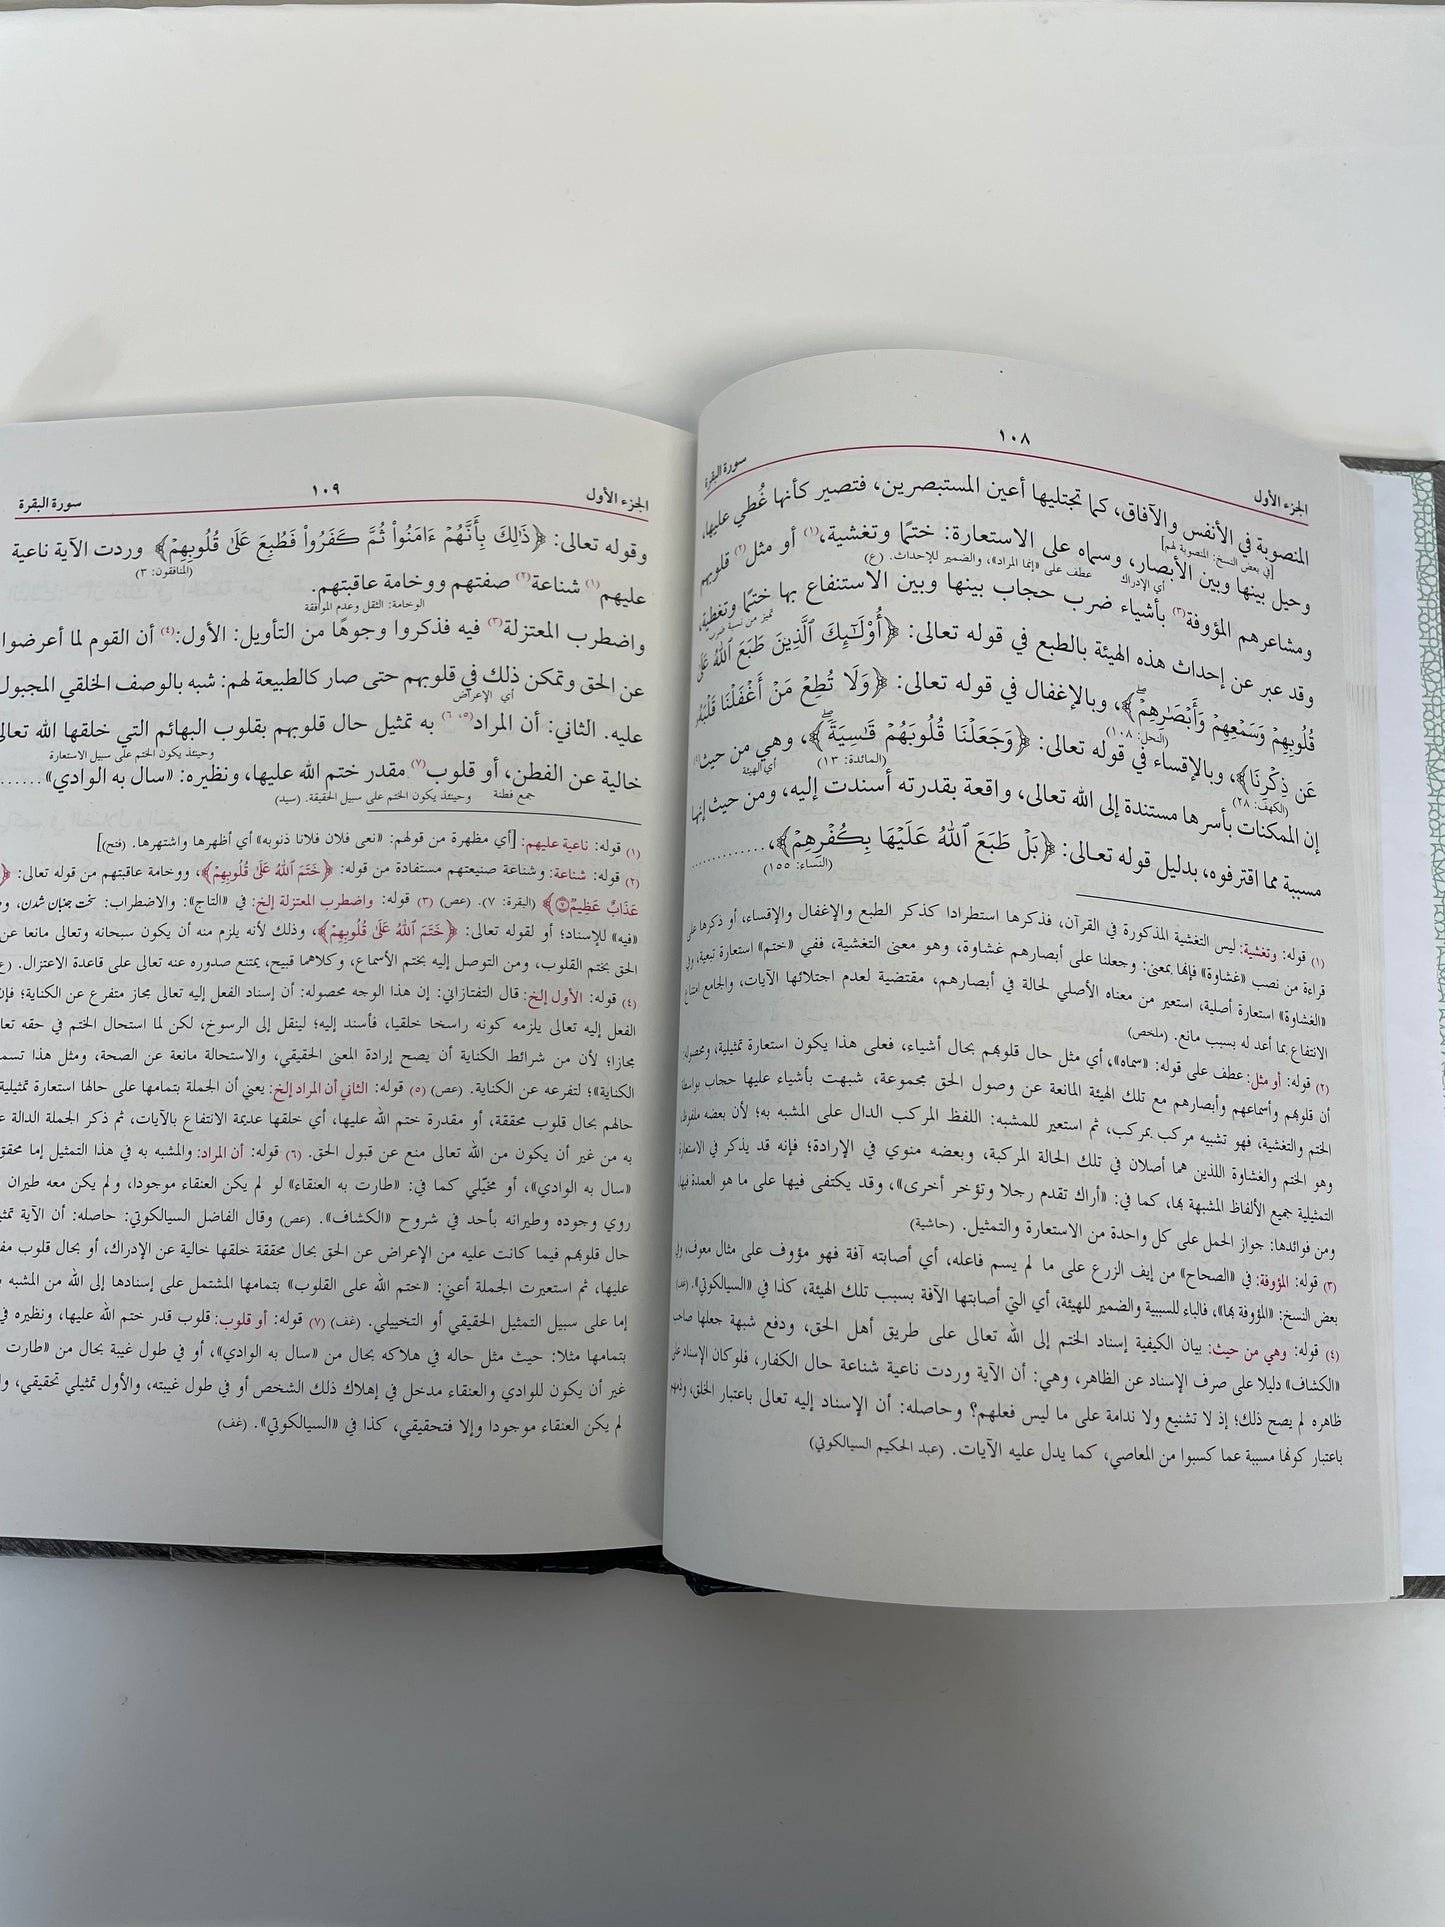 الجزء الأول
١٠٨
سورة البقرة
المنصوبة في الأنفس والآفاق، كما تجتليها أعين المستبصرين، فتصير كأنها غُطي عليها،
[في بعض النسخ: المنصوبة لهم]
وحيل بينها وبين الأبصار، وسماه على الاستعارة: ختمًا وتغشية،(١) أو مثل(٢) قلوبهم
أي الإدراك
عطف على «إنما المراد»، والضمير للإحداث. (ع)
ومشاعرهم المؤوفة(٣) بأشياء ضرب حجاب بينها وبين الاستنفاع بها ختمًا وتغطية،
تميز من نسبة ضرب
وقد عبر عن إحداث هذه الهيئة بالطبع في قوله تعالى: ﴿أُوْلَـٰٓئِكَ ٱلَّذِينَ طَبَعَ ٱللَّهُ عَلَىٰ
قُلُوبِهِمۡ وَسَمۡعِهِمۡ وَأَبۡصَـٰرِهِمۡۖ﴾، وبالإغفال في قوله تعالى: ﴿وَلَا تُطِعۡ مَنۡ أَغۡفَلۡنَا قَلۡبَهُۥ
(النحل: ١٠٨)
عَن ذِكۡرِنَا﴾، وبالإقساء في قوله تعالى: ﴿وَجَعَلۡنَا قُلُوبَهُمۡ قَـٰسِيَةٗۖ﴾، وهي من حيث(٤)
(الكهف: ٢٨)
(المائدة: ١٣)
أي الهيئة
إن الممكنات بأسرها مستندة إلى الله تعالى، واقعة بقدرته أسندت إليه، ومن حيث إنها
مسببة مما اقترفوه، بدليل قوله تعالى: ﴿بَلۡ طَبَعَ ٱللَّهُ عَلَيۡهَا بِكُفۡرِهِمۡ﴾، ..............
(النساء: ١٥٥)
(١) قوله: وتغشية: ليس التغشية المذكورة في القرآن، فذكرها استطرادا كذكر الطبع والإغفال والإقساء، أو ذكرها على
قراءة من نصب «غشاوة» فإنها بمعنى: وجعلنا على أبصارهم غشاوة، وهو معنى التغشية، ففي «ختم» استعارة تبعية، وفي
«الغشاوة» استعارة أصلية، استعير من معناه الأصلي لحالة في أبصارهم، مقتضية لعدم اجتلائها الآيات، والجامع امتناع
الانتفاع بما أعد له بسبب مانع. (ملخص)
(٢) قوله: أو مثل: عطف على قوله: «سماه»، أي مثل حال قلوبهم بحال أشياء، فعلى هذا يكون استعارة تمثيلية، ومحصوله:
أن قلوبهم وأسماعهم وأبصارهم مع تلك الهيئة المانعة عن وصول الحق مجموعة، شبهت بأشياء عليها حجاب بواسطة
الختم والتغشية، فهو تشبيه مركب بمركب، ثم استعير للمشبه: اللفظ المركب الدال على المشبه به؛ لأن بعضه ملفوظ،
وهو الختم والغشاوة اللذين هما أصلان في تلك الحالة المركبة، وبعضه منوي في الإرادة؛ فإنه قد يذكر في الاستعارة
التمثيلية جميع الألفاظ المشبهة بها، كما في: «أراك تقدم رجلا وتؤخر أخرى»، وقد يكتفى فيها على ما هو العمدة فيها،
ومن فوائدها: جواز الحمل على كل واحدة من الاستعارة والتمثيل. (حاشية)
(٣) قوله: المؤوفة: في «الصحاح» من إيف الزرع على ما لم يسم فاعله، أي أصابته آفة فهو مؤوف على مثال معوف، وفي
بعض النسخ: «المؤوفة بها»، فالباء للسببية والضمير للهيئة، أي التي أصابتها الآفة بسبب تلك الهيئة، كذا في «السيالكوتي».
(٤) قوله: وهي من حيث: بيان الكيفية إسناد الختم إلى الله تعالى على طريق أهل الحق، ودفع شبهة جعلها صاحب
«الكشاف» دليلا على صرف الإسناد عن الظاهر، وهي: أن الآية وردت ناعية شناعة حال الكفار، فلو كان الإسناد على
ظاهره لم يصح ذلك؛ إذ لا تشنيع ولا ندامة على ما ليس فعلهم؟ وحاصله: أن الإسناد إليه تعالى باعتبار الخلق، وذمهم
باعتبار كونها مسببة عما كسبوا من المعاصي، كما يدل عليه الآيات. (عبد الحكيم السيالكوتي)
الجزء الأول
١٠٩
سورة البقرة
وقوله تعالى: ﴿ذَٰلِكَ بِأَنَّهُمۡ ءَامَنُواْ ثُمَّ كَفَرُواْ فَطُبِعَ عَلَىٰ قُلُوبِهِمۡ﴾ وردت الآية ناعية
(المنافقون: ٣)
عليهم(١) شناعة(٢) صفتهم ووخامة عاقبتهم.
الوخامة: الثقل وعدم الموافقة
واضطرب المعتزلة(٣) فيه فذكروا وجوهًا من التأويل: الأول:(٤) أن القوم لما أعرضوا
عن الحق وتمكن ذلك في قلوبهم حتى صار كالطبيعة لهم: شبه بالوصف الخلقي المجبول
أي الإعراض
عليه. الثاني: أن المراد(٥، ٦) به تمثيل حال قلوبهم بقلوب البهائم التي خلقها الله تعالى
وحينئذ يكون الختم على سبيل الاستعارة
خالية عن الفطن، أو قلوب(٧) مقدر ختم الله عليها، ونظيره: «سال به الوادي»......
جمع فطنة
وحينئذ يكون الختم على سبيل الحقيقة. (سيد)
(١) قوله: ناعية عليهم: [أي مظهرة من قولهم: «نعى فلان فلانا ذنوبه» أي أظهرها واشتهرها. (فتح)]
(٢) قوله: شناعة: وشناعة صنيعتهم مستفادة من قوله: ﴿خَتَمَ ٱللَّهُ عَلَىٰ قُلُوبِهِمۡ﴾، ووخامة عاقبتهم من قوله تعالى:
عَذَابٌ عَظِيمٞ٧﴾ (البقرة: ٧). (عص) (٣) قوله: واضطرب المعتزلة إلخ: في «التاج»: والاضطراب: سخت جنبان شدن،
«فيه» للإسناد؛ أو لقوله تعالى: ﴿خَتَمَ ٱللَّهُ عَلَىٰ قُلُوبِهِمۡ﴾، وذلك لأنه يلزم منه أن يكون سبحانه وتعالى مانعا عن
الحق بختم القلوب، ومن التوصل إليه بختم الأسماع، وكلاهما قبيح، يمتنع صدوره عنه تعالى على قاعدة الاعتزال.
(٤) قوله: الأول إلخ: قال التفتازاني: إن هذا الوجه محصوله: أن إسناد الفعل إليه تعالى مجاز متفرع عن الكناية؛ فإن
الفعل إليه تعالى يلزمه كونه راسخا خلقيا، فأسند إليه؛ لينقل إلى الرسوخ، لكن لما استحال الختم في حقه
مجازا؛ لأن من شرائط الكناية أن يصح إرادة المعنى الحقيقي، والاستحالة مانعة عن الصحة، ومثل هذا
الكناية»؛ لتفرعه عن الكناية. (عص) (٥) قوله: الثاني أن المراد إلخ: يعني أن الجملة بتمامها على حالها استعارة تمثيلية
حالهم بحال قلوب محققة، أو مقدرة ختم الله عليها، أي خلقها عديمة الانتفاع بالآيات، ثم ذكر الجملة الدالة
به من غير أن يكون من الله تعالى منع عن قبول الحق. (٦) قوله: أن المراد: والمشبه به في هذا التمثيل إما محقق
«سال به الوادي»، أو مخيّلي كما في: «طارت به العنقاء» لو لم يكن العنقاء موجودا، ولم يكن معه طيران
روي وجوده وطيرانه بأحد في شروح «الكشاف». (عص) وقال الفاضل السيالكوتي: حاصله: أن الآية
حال قلوبهم فيما كانت عليه من الإعراض عن الحق بحال محققة خلقها خالية عن الإدراك، أو بحال قلوب
عليها، ثم استعيرت الجملة أعني: «ختم الله على القلوب» بتمامها المشتمل على إسنادها إلى الله من المشبه
إما على سبيل التمثيل الحقيقي أو التخييلي. (غف) (٧) قوله: أو قلوب: قلوب قدر ختم الله عليها، ونظيره في
بتمامها مثلا: حيث مثل حاله في هلاكه بحال من «سال به الوادي»، أو في طول غيبة بحال من «طارت
غير أن يكون للوادي والعنقاء مدخل في إهلاك ذلك الشخص أو في طول غيبته، والأول تمثيلي تحقيقي،
لم يكن العنقاء موجودا وإلا فتحقيقي، كذا في «السيالكوتي». (غف)